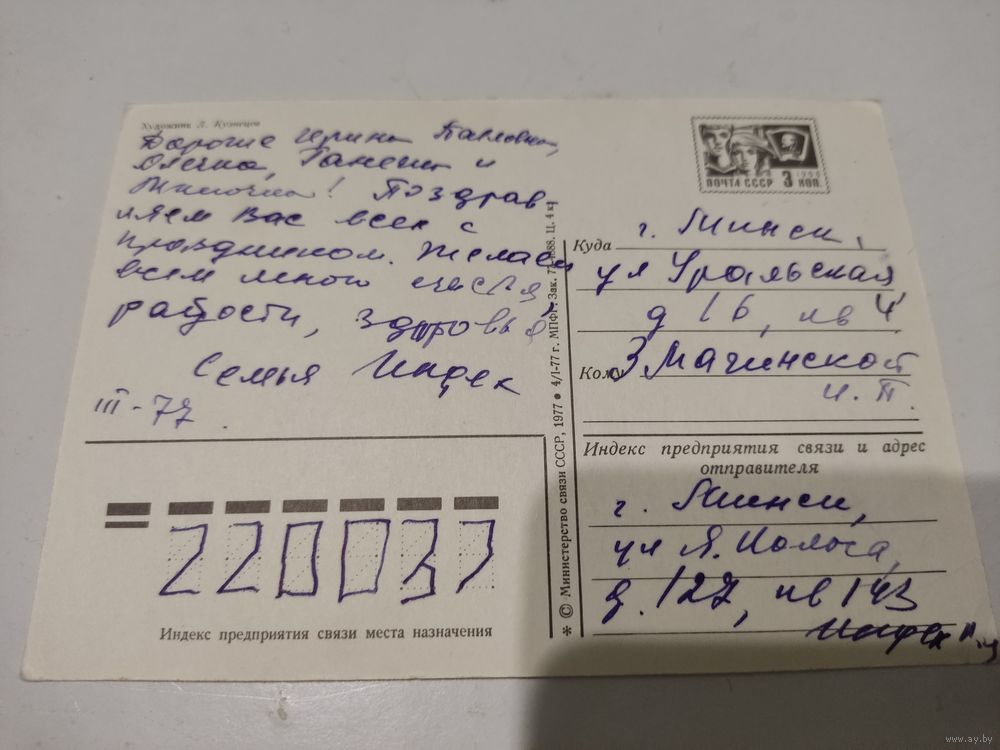 Художник Л. Кузнецов
Дорогие Ирина Павловна,
Олечка, и
Милочка! Поздрав
ляем Вас всех с
праздником. Желаем
всем много счастья,
радости, здоровья
Семья Индек
III-77.
ПОЧТА СССР 3 КОП.
1966
Куда г. Минск,
ул Уральская,
д 16, кв 4,
Кому Мачинской
И. П.
Индекс предприятия связи и адрес
отправителя
г. Минск,
ул Я. Коласа,
д. 127, кв 143
220037
Индекс предприятия связи места назначения
* © Министерство связи СССР, 1977 • 4/I-77 г. МПФГ. Зак. Ц. 4 к
www.ay.by